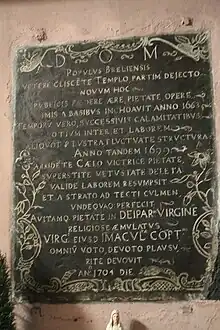 D O M
POPULUS BRELIENSIS
VETERE CLISCETE TEMPLO PARTIM DEJECTO
NOVUM HOC
PUBLICIS PECORE ÆRE, PIETATE, OPERE
IMIS A BASIBUS INCHOAVIT ANNO 1663
TEMPORU VERO, SUCCESSIVIS CALAMITATIBUS
OTIUM INTER ET LABOREM
ALIQUOT P LUSTRA FLUCTUATE STRUCTURA
ANNO TANDEM 1697
ARRIDETE CÆLO VICTRICE PIETATE,
SUPERSTITE VETUSTATE DELETA
VALIDE LABOREM RESUMPSIT
ET A STRATO AD TECTI CULMEN
UNDEQUAQ PERFECIT
AVITAMQ PIETATE IN DEIPARA VIRGINE
RELIGIOSE ÆMULATUS
VIRG EIUSD IMACUL COPT
OMNIŪ VOTO, DEVOTO PLAUSU,
RITE DEVOVIT
AN 1704 DIE